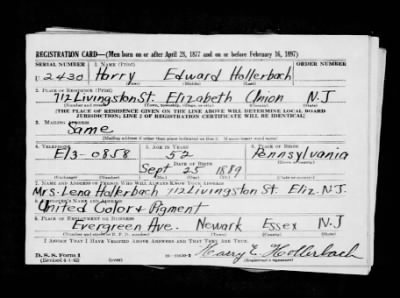 REGISTRATION CARD—(Men born on or after April 28, 1877 and on or before February 16, 1897)
SERIAL NUMBER 1. NAME (Print) ORDER NUMBER
U 2430 Harry Edward Hollerbach
(First) (Middle) (Last)
2. PLACE OF RESIDENCE (Print)
712 Livingston St. Elizabeth Union N.J.
(Number and street) (Town, township, village, or city) (County) (State)
[THE PLACE OF RESIDENCE GIVEN ON THE LINE ABOVE WILL DETERMINE LOCAL BOARD
JURISDICTION; LINE 2 OF REGISTRATION CERTIFICATE WILL BE IDENTICAL]
3. MAILING ADDRESS
Same
[Mailing address if other than place indicated on line 2. If same insert word same]
4. TELEPHONE 5. AGE IN YEARS PLACE OF BIRTH
El3-0858 52 Pennsylvania
DATE OF BIRTH
Sept 25 1889
7. NAME AND ADDRESS OF PERSON WHO WILL ALWAYS KNOW YOUR ADDRESS
Mrs. Lena Hollerbach 712 Livingston St. Eliz. N.J.
8. EMPLOYER'S NAME AND ADDRESS
United Color & Pigment
9. PLACE OF EMPLOYMENT OR BUSINESS
Evergreen Ave. Newark Essex N.J
(Number and street or R. F. D. number) (Town) (County) (State)
I AFFIRM THAT I HAVE VERIFIED ABOVE ANSWERS AND THAT THEY ARE TRUE.
D. S. S. Form 1
(Revised 4-1-42) (over)
Harry E. Hollerbach
(Registrant's signature)